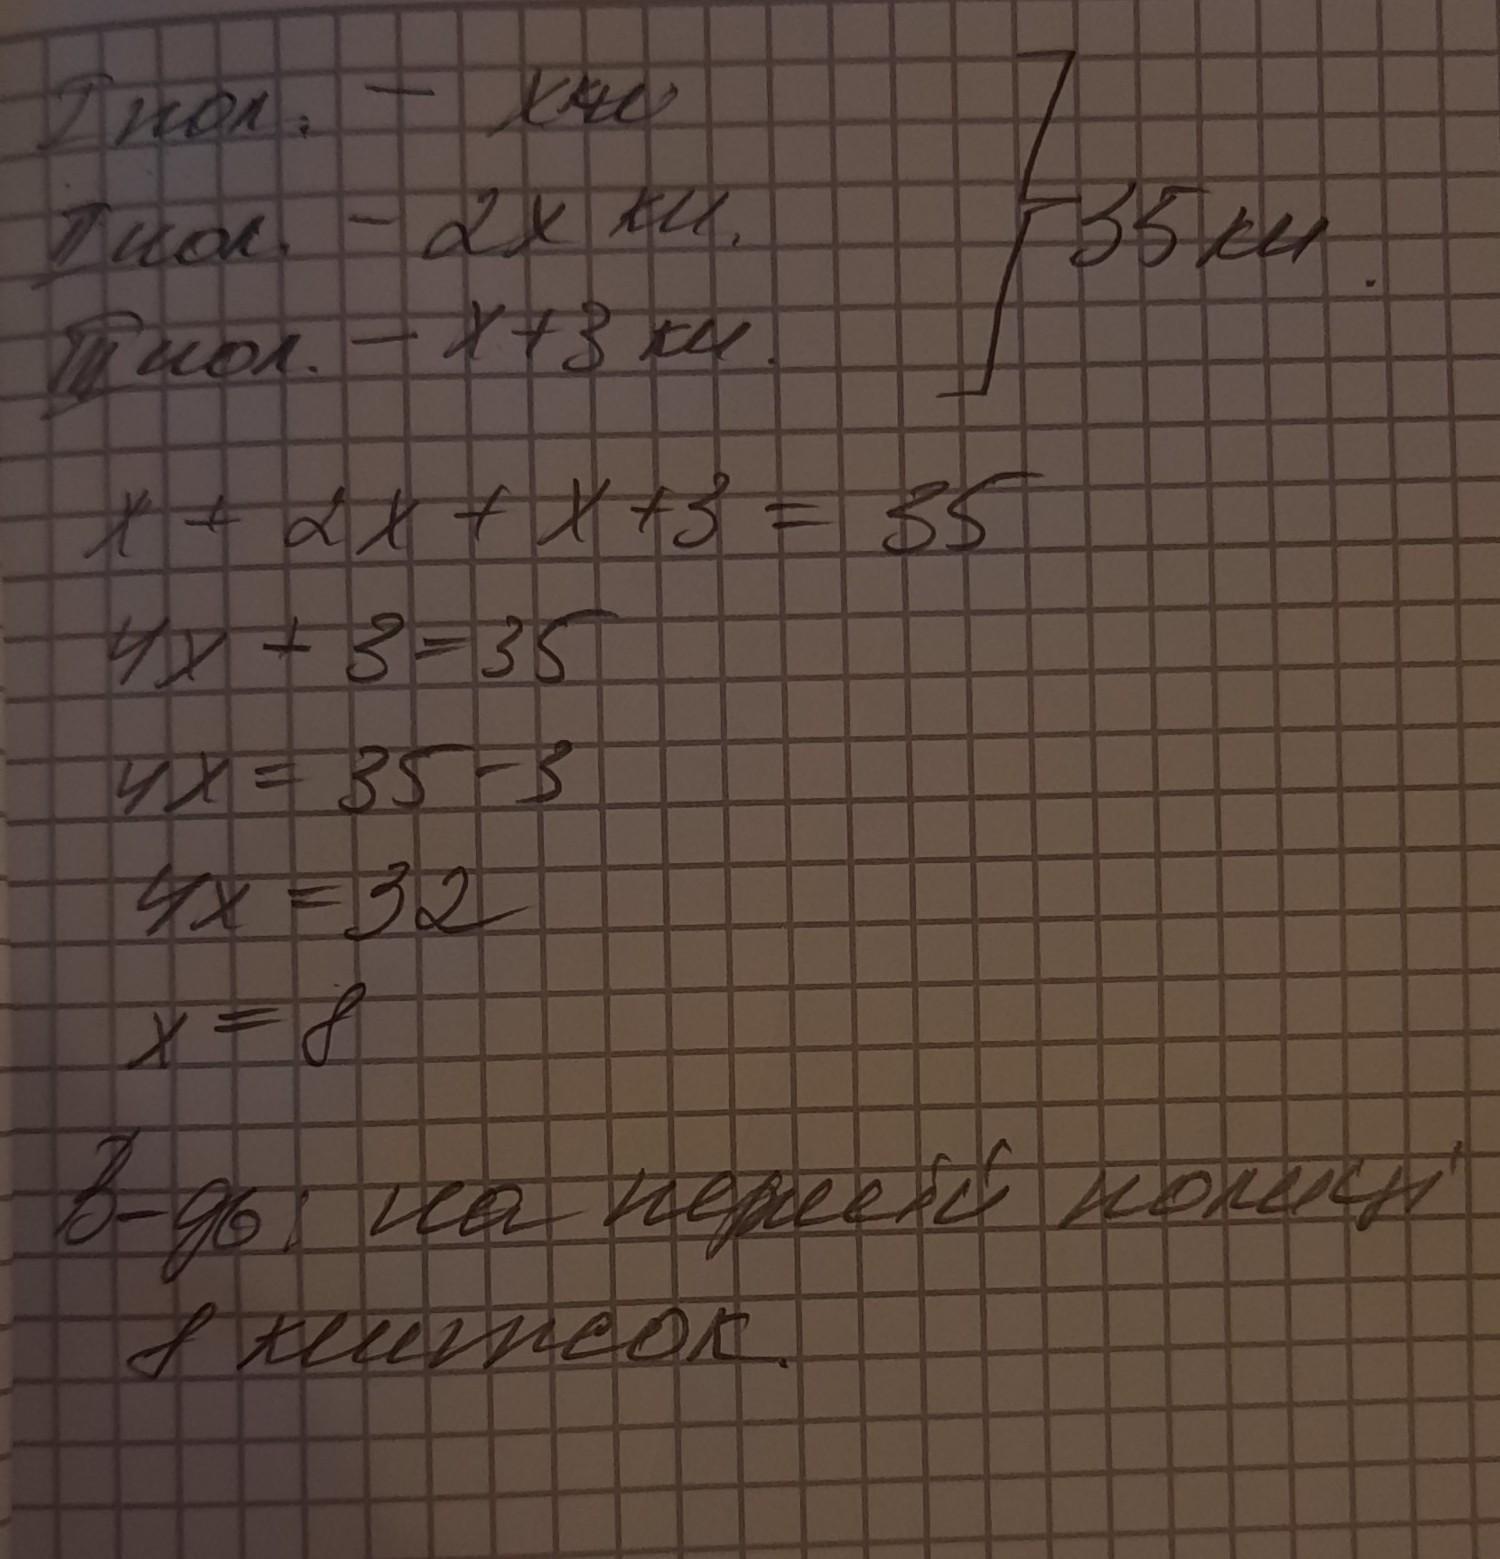 I пол. - x кн
II пол. - 2x кн.
III пол. - x+3 кн.
35 кн.
x + 2x + x + 3 = 35
4x + 3 = 35
4x = 35 - 3
4x = 32
x = 8
В-дь: на першій полиці
8 книжок.